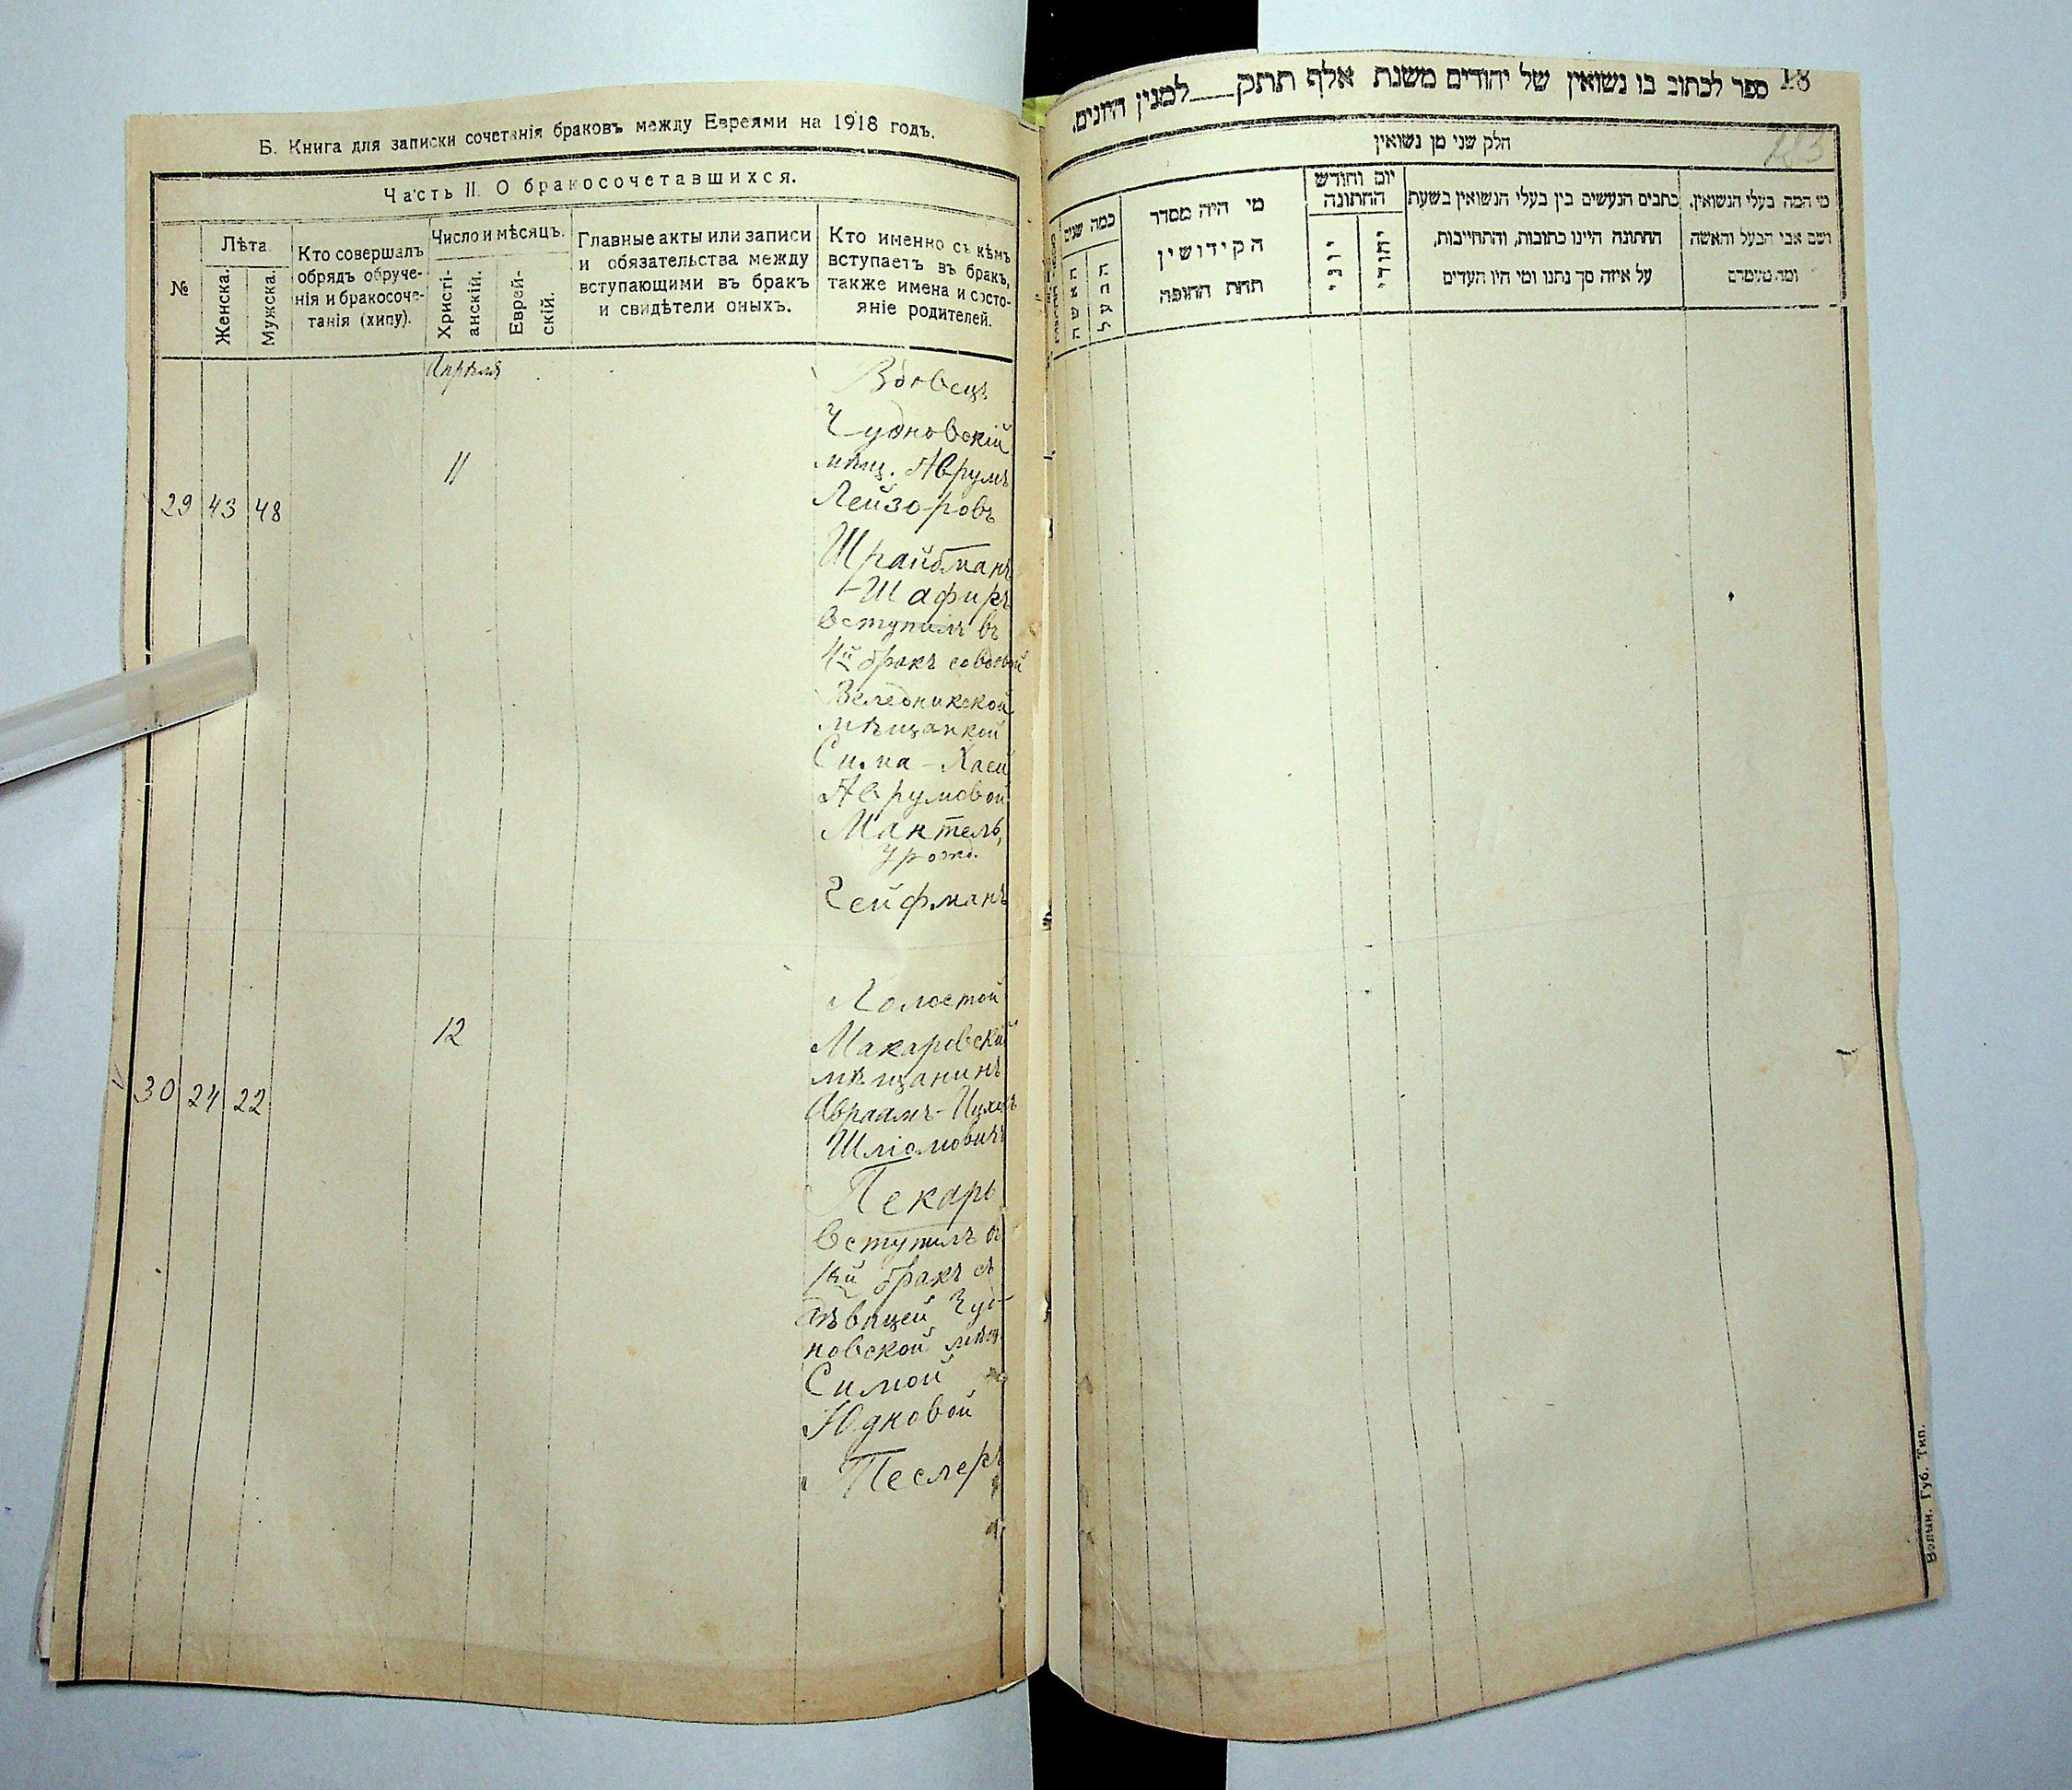 Б. Книга для записки сочетанія браковъ между Евреями на 1918 годъ.
Часть II. О бракосочетавшихся.
№
Лѣта
Женска.
Мужска.
Кто совершалъ
обрядъ обруче-
нія и бракосоче-
танія (хипу).
Число и мѣсяцъ.
Христі-
анскій.
Еврей-
скій.
Главные акты или записи
и обязательства между
вступающими въ бракъ
и свидѣтели оныхъ.
Кто именно съ кѣмъ
вступаетъ въ бракъ,
также имена и состо-
яніе родителей.
Апрѣля
29 43 48
11
Вдовецъ
Чудновскій
мѣщ. Аврумъ
Лейзоровъ
Шрайбманъ
-Шафиръ
вступилъ въ
4й бракъ со вдовой
Веледникской
мѣщанкой
Сима-Хаей
Аврумовой
Мантель,
урожд.
Чейфманъ
30 24 22
12
Холостой
Макаровскій
мѣщанинъ
Авраамъ-
Шліомовичъ
Пекарь
вступилъ въ
1й бракъ съ
дѣвицей Чуд-
новской мѣщ.
Симой
Юдковой
Теслеръ
18
ספר לכתוב בו נשואין של יהודים משנת אלף תתק___למנין היונים.
חלק שני מן נשואין
מי המה בעלי הנשואין,
ושם אבי הבעל והאשה
ומה מעמדם
כתבים הנעשים בין בעלי הנשואין בשעת
החתונה היינו כתובות, והתחייבות,
על איזה סך נתנו ומי היו העדים
יום וחודש
החתונה
יהודי
יוני
מי היה מסדר
הקידושין
תחת החופה
כמה שנים
הבעל
האשה
Волын. Губ. Тип.